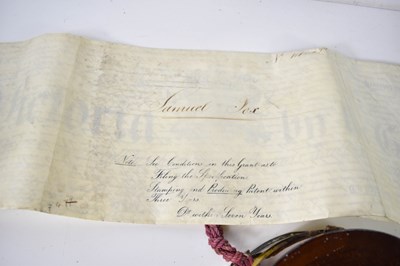 Samuel Fox
Note See Condition in this Grant as to
Filing the Specification
Stamping and Producing Patent within
Three Years
Do within Seven Years